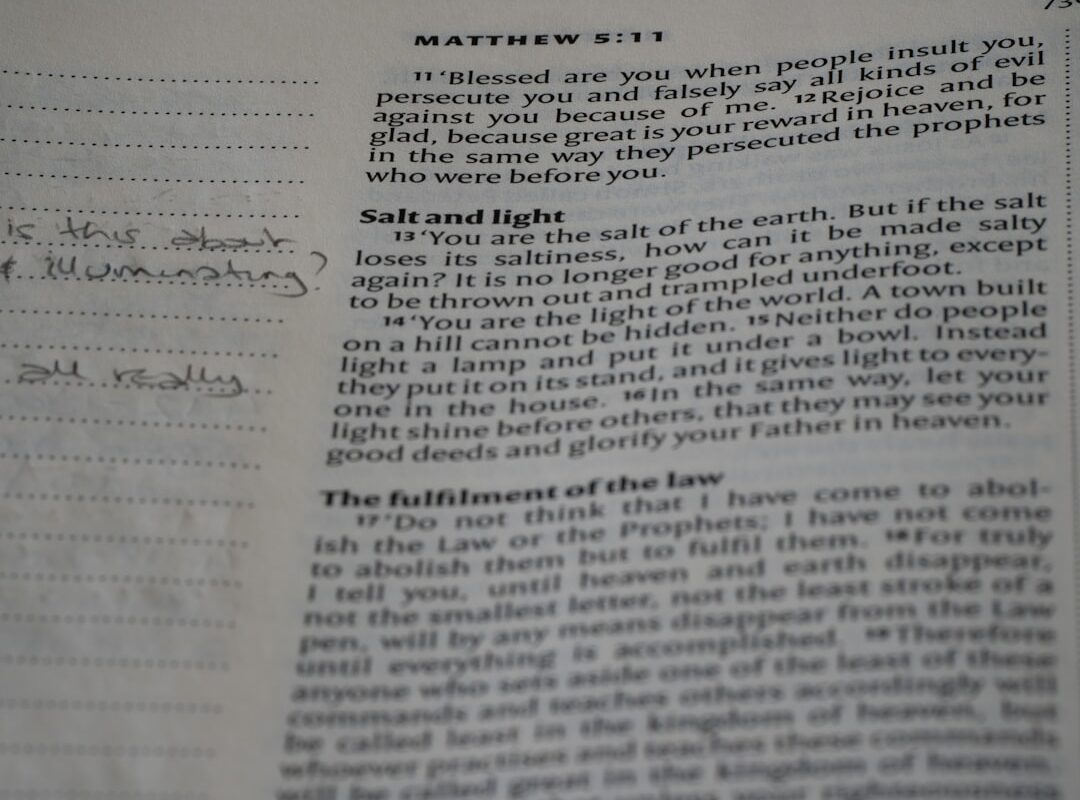 MATTHEW 5:11
11 ‘Blessed are you when people insult you,
persecute you and falsely say all kinds of evil
against you because of me. 12 Rejoice and be
glad, because great is your reward in heaven, for
in the same way they persecuted the prophets
who were before you.
Salt and light
13 ‘You are the salt of the earth. But if the salt
loses its saltiness, how can it be made salty
again? It is no longer good for anything, except
to be thrown out and trampled underfoot.
14 ‘You are the light of the world. A town built
on a hill cannot be hidden. 15 Neither do people
light a lamp and put it under a bowl. Instead
they put it on its stand, and it gives light to every-
one in the house. 16 In the same way, let your
light shine before others, that they may see your
good deeds and glorify your Father in heaven.
The fulfilment of the law
17 ‘Do not think that I have come to abol-
ish the Law or the Prophets; I have not come
to abolish them but to fulfil them. 18 For truly
I tell you, until heaven and earth disappear,
not the smallest letter, not the least stroke of a
pen, will by any means disappear from the Law
until everything is accomplished. 19 Therefore
anyone who sets aside one of the least of these
commands and teaches others accordingly will
be called least in the kingdom of heaven, but
whoever practises and teaches these commands
will be called great in the kingdom of heaven.
is this about
illuminating?
all really